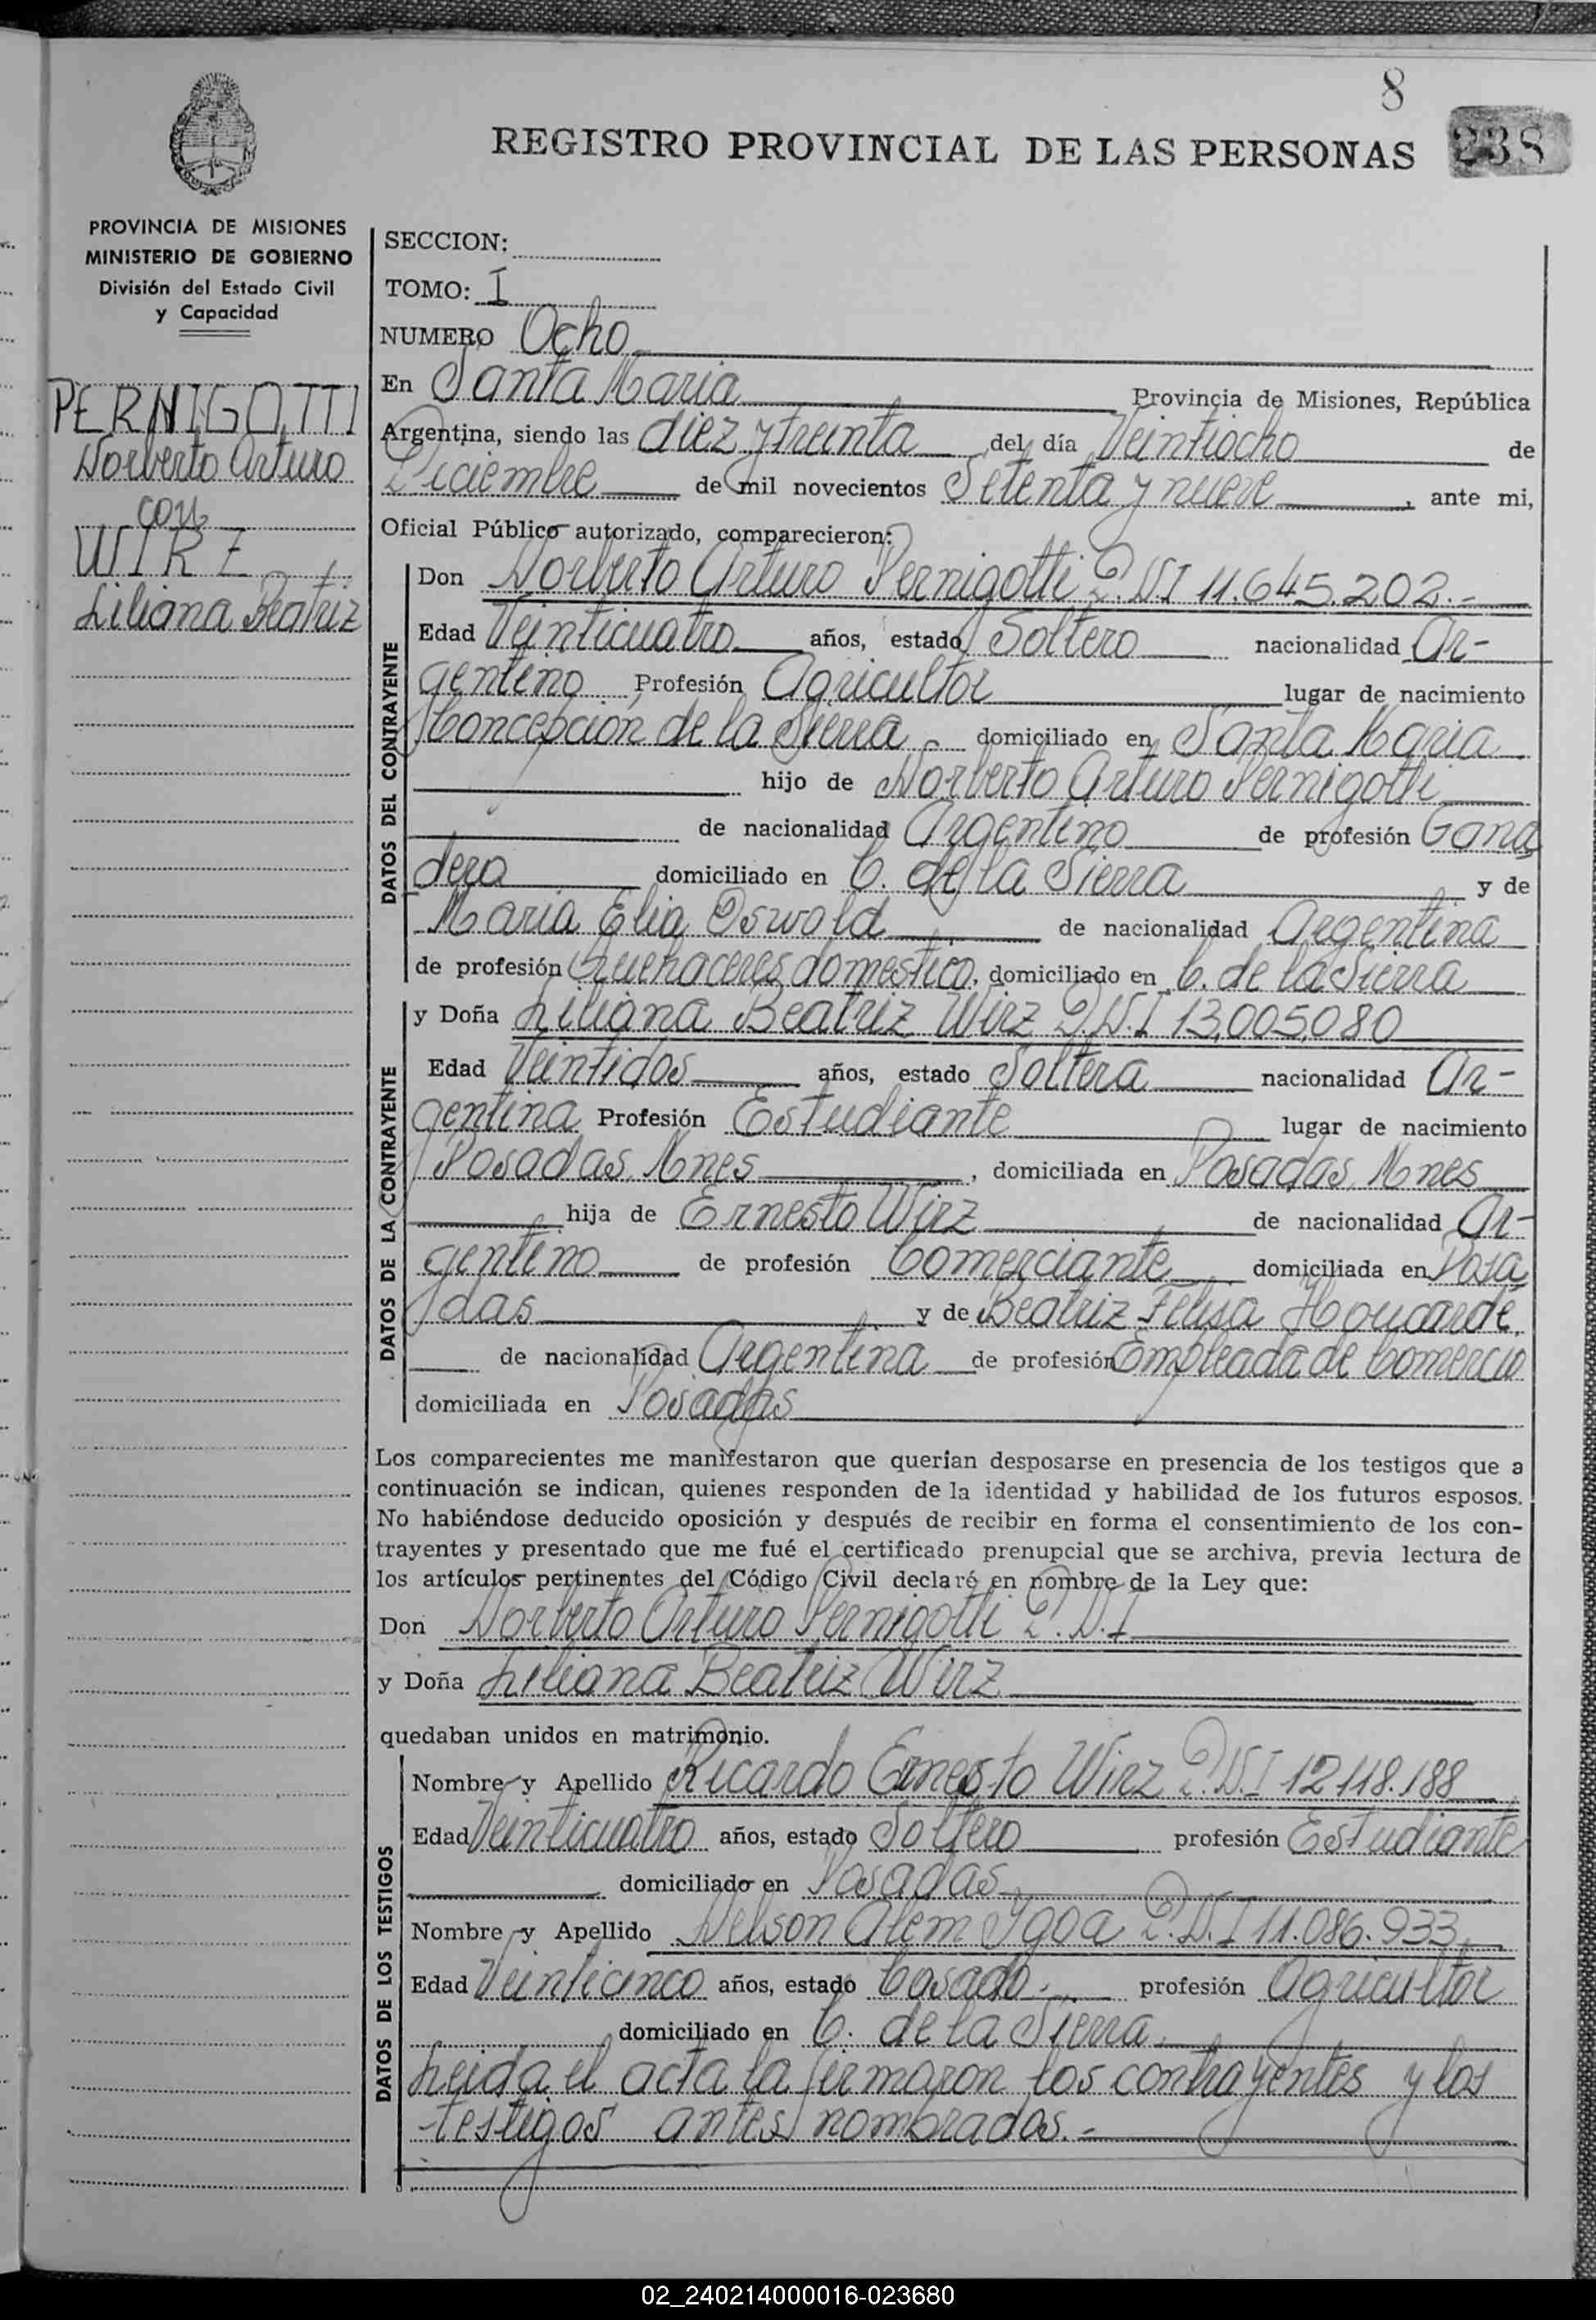 8
REGISTRO PROVINCIAL DE LAS PERSONAS 238
PROVINCIA DE MISIONES
MINISTERIO DE GOBIERNO
División del Estado Civil
y Capacidad
PERNIGOTTI
Norberto Arturo
con
WIRZ
Liliana Beatriz
SECCION:
TOMO: I
NUMERO Ocho
En Santa Maria Provincia de Misiones, República
Argentina, siendo las diez y treinta del día Veintiocho de
Diciembre de mil novecientos Setenta y nueve, ante mi,
Oficial Público autorizado, comparecieron:
DATOS DEL CONTRAYENTE
Don Norberto Arturo Pernigotti D.NI 11.645.202.-
Edad Veinticuatro años, estado Soltero nacionalidad Ar-
gentino Profesión Agricultor lugar de nacimiento
Concepción de la Sierra domiciliado en Santa Maria
hijo de Norberto Arturo Pernigotti
de nacionalidad Argentino de profesión Gana
dero domiciliado en C. de la Sierra y de
Maria Elia Oswald de nacionalidad Argentina
de profesión Quehaceres domestico, domiciliado en C. de la Sierra
DATOS DE LA CONTRAYENTE
y Doña Liliana Beatriz Wirz D.N.I 13,005,080
Edad Veintidos años, estado Soltera nacionalidad Ar-
gentina Profesión Estudiante lugar de nacimiento
Posadas, Mnes, domiciliada en Posadas, Mnes
hija de Ernesto Wirz de nacionalidad Ar-
gentino de profesión Comerciante domiciliada en Posa
das y de Beatriz Felisa
de nacionalidad Argentina de profesión Empleada de Comercio
domiciliada en Posadas
Los comparecientes me manifestaron que querían desposarse en presencia de los testigos que a
continuación se indican, quienes responden de la identidad y habilidad de los futuros esposos.
No habiéndose deducido oposición y después de recibir en forma el consentimiento de los con-
trayentes y presentado que me fué el certificado prenupcial que se archiva, previa lectura de
los artículos pertinentes del Código Civil declaré en nombre de la Ley que:
Don Norberto Arturo Pernigotti D.N.I
y Doña Liliana Beatriz Wirz
quedaban unidos en matrimonio.
DATOS DE LOS TESTIGOS
Nombre y Apellido Ricardo Ernesto Wirz D.N.I 12.118.188
Edad Veinticuatro años, estado Soltero profesión Estudiante
domiciliado en Posadas
Nombre y Apellido Nelson Alem Ygoa D.N.I 11.086.933
Edad Veinticinco años, estado Casado. profesión Agricultor
domiciliado en C. de la Sierra.
Leida el acta la firmaron los contrayentes y los
testigos antes nombrados.-
02_240214000016-023680